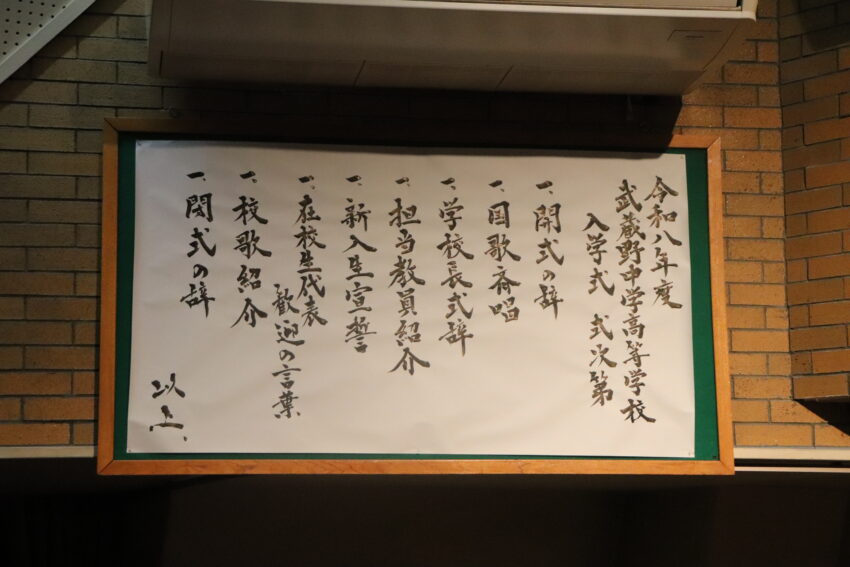 令和八年度
武蔵野中学高等学校
入学式 式次第
一、開式の辞
一、国歌斉唱
一、学校長式辞
一、担当教員紹介
一、新入生宣誓
一、在校生代表
歓迎の言葉
一、校歌紹介
一、閉式の辞
以上、